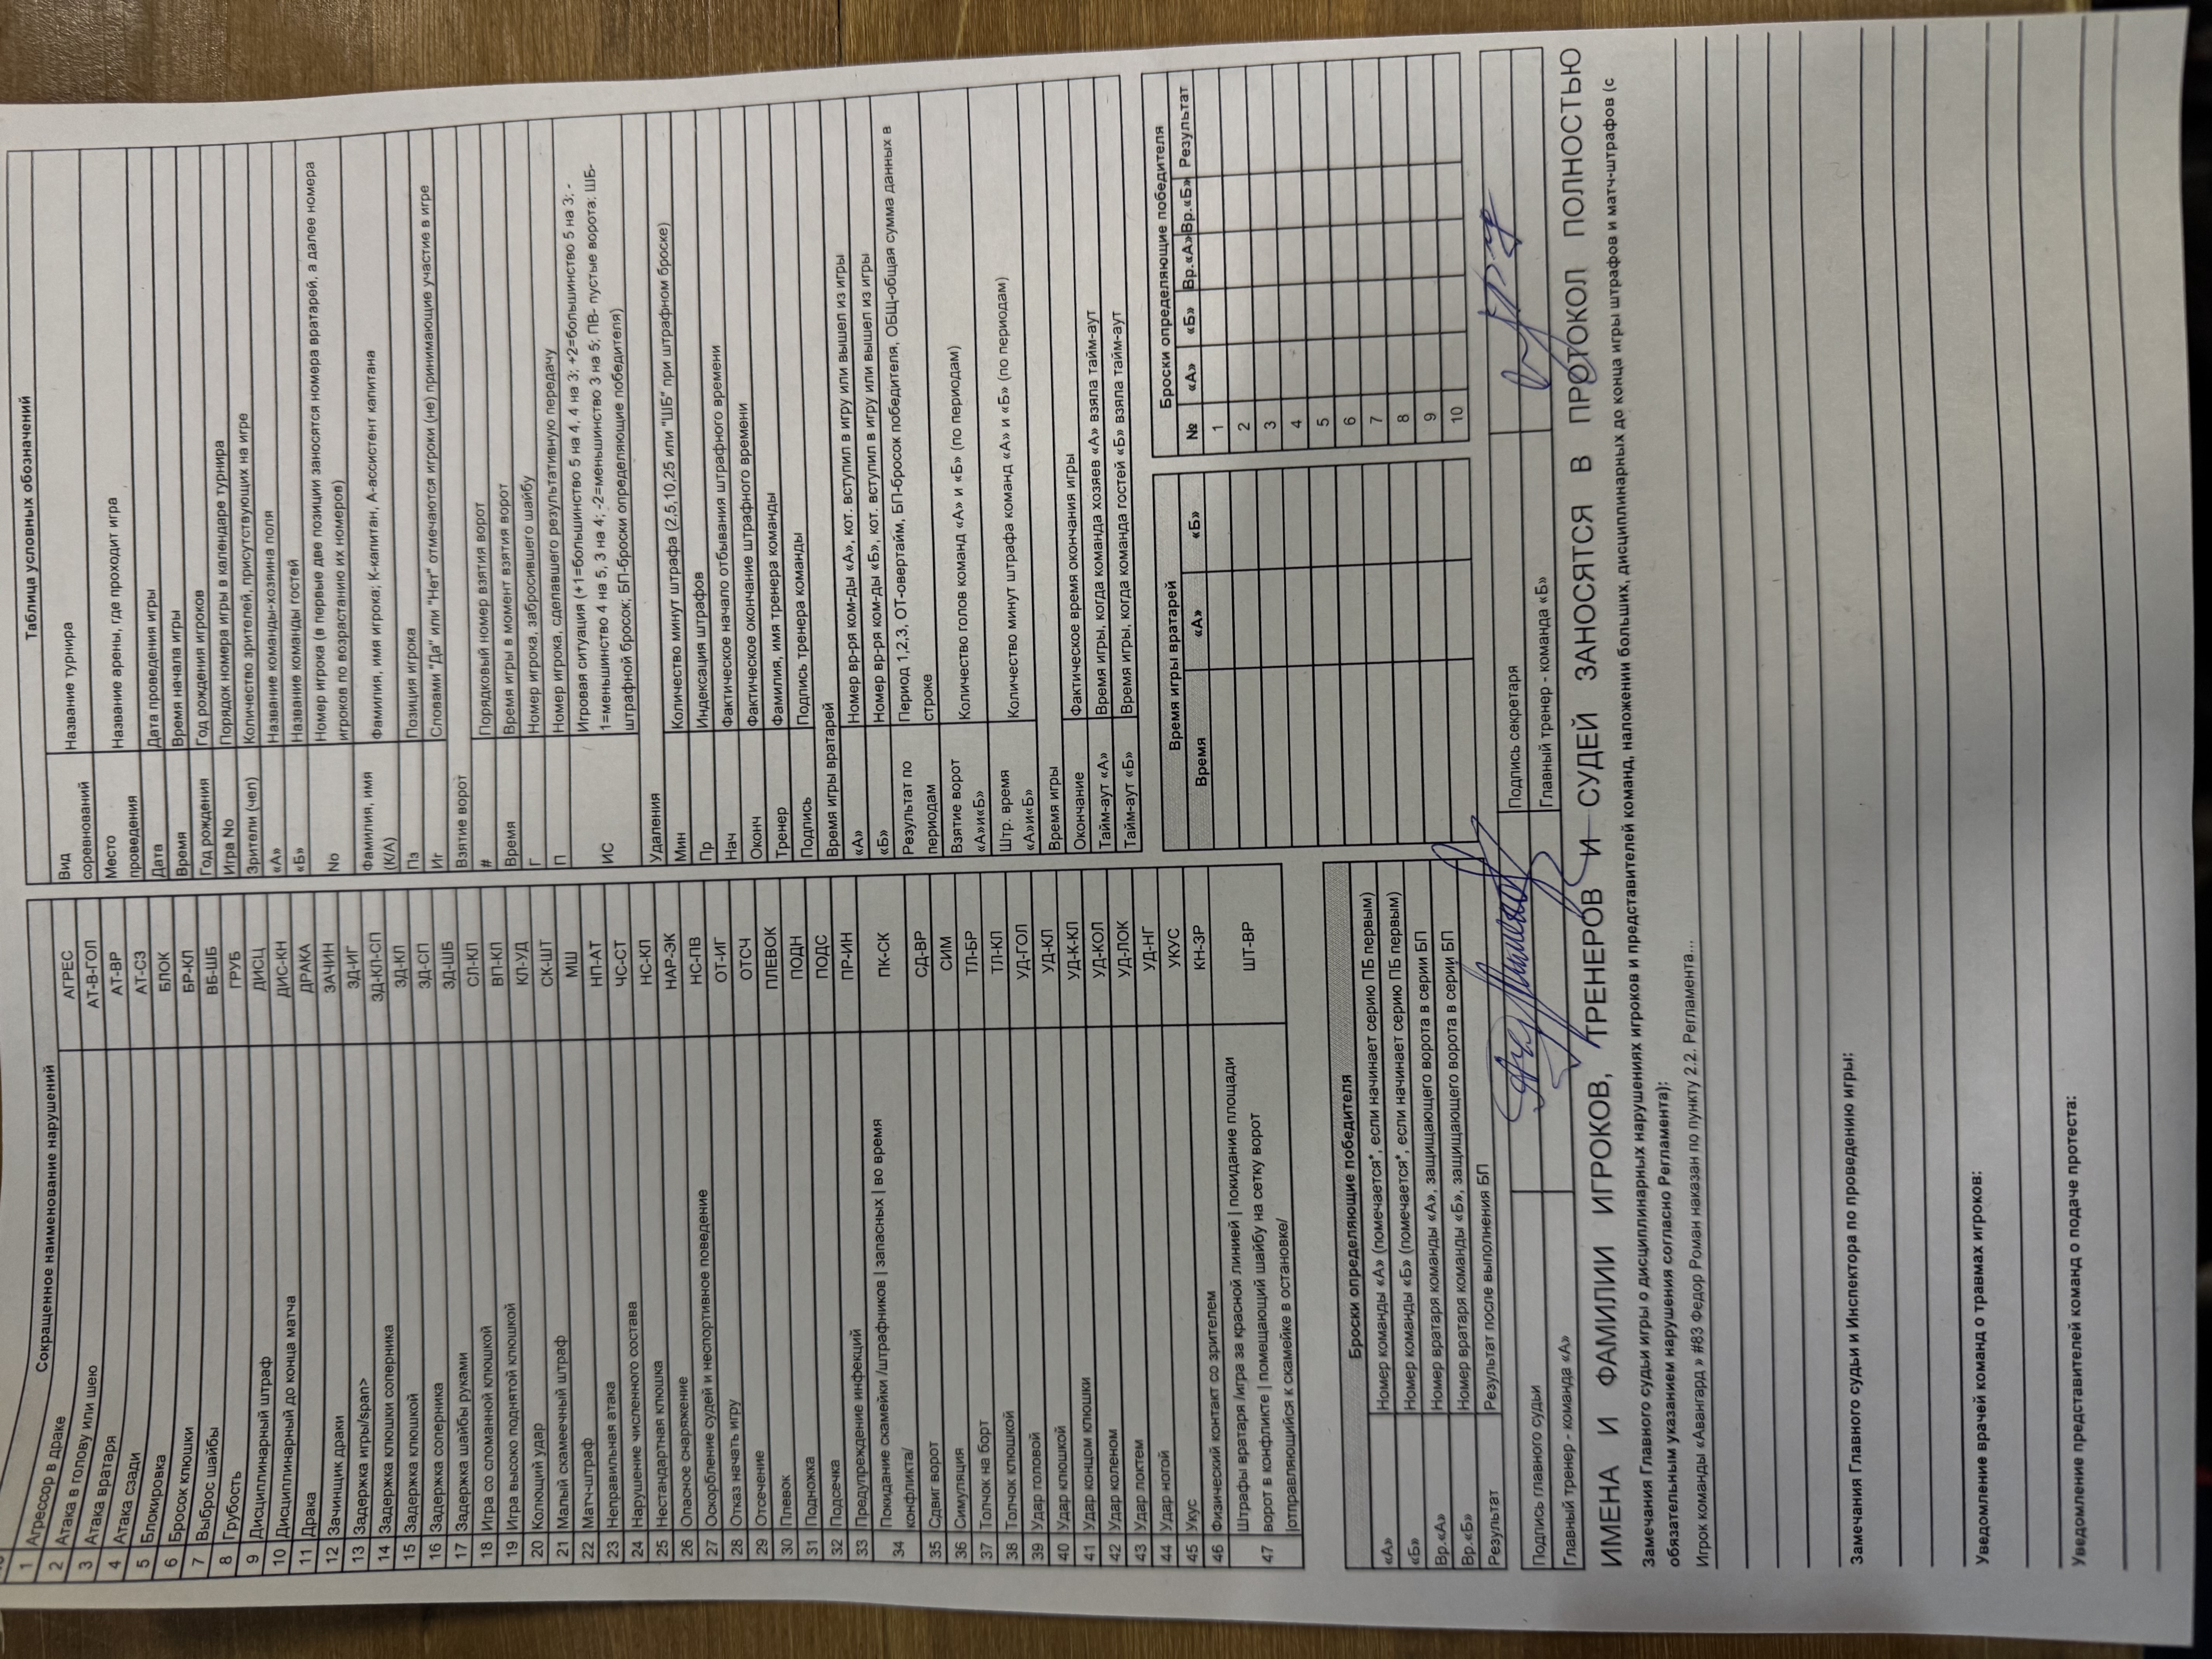 Сокращенное наименование нарушений
1 Агрессор в драке АГРЕС
2 Атака в голову или шею АТ-В-ГОЛ
3 Атака вратаря АТ-ВР
4 Атака сзади АТ-СЗ
5 Блокировка БЛОК
6 Бросок клюшки БР-КЛ
7 Выброс шайбы ВБ-ШБ
8 Грубость ГРУБ
9 Дисциплинарный штраф ДИСЦ
10 Дисциплинарный до конца матча ДИС-КН
11 Драка ДРАКА
12 Зачинщик драки ЗАЧИН
13 Задержка игры/span> ЗД-ИГ
14 Задержка клюшки соперника ЗД-КЛ-СП
15 Задержка клюшкой ЗД-КЛ
16 Задержка соперника ЗД-СП
17 Задержка шайбы руками ЗД-ШБ
18 Игра со сломанной клюшкой СЛ-КЛ
19 Игра высоко поднятой клюшкой ВП-КЛ
20 Колющий удар КЛ-УД
21 Малый скамеечный штраф СК-ШТ
22 Матч-штраф МШ
23 Неправильная атака НП-АТ
24 Нарушение численного состава ЧС-СТ
25 Нестандартная клюшка НС-КЛ
26 Опасное снаряжение НАР-ЭК
27 Оскорбление судей и неспортивное поведение НС-ПВ
28 Отказ начать игру ОТ-ИГ
29 Отсечение ОТСЧ
30 Плевок ПЛЕВОК
31 Подножка ПОДН
32 Подсечка ПОДС
33 Предупреждение инфекций ПР-ИН
34 Покидание скамейки /штрафников | запасных | во время
конфликта/ ПК-СК
35 Сдвиг ворот СД-ВР
36 Симуляция СИМ
37 Толчок на борт ТЛ-БР
38 Толчок клюшкой ТЛ-КЛ
39 Удар головой УД-ГОЛ
40 Удар клюшкой УД-КЛ
41 Удар концом клюшки УД-К-КЛ
42 Удар коленом УД-КОЛ
43 Удар локтем УД-ЛОК
44 Удар ногой УД-НГ
45 Укус УКУС
46 Физический контакт со зрителем КН-ЗР
47 Штрафы вратаря /игра за красной линией | покидание площади
ворот в конфликте | помещающий шайбу на сетку ворот
|отправляющийся к скамейке в остановке/ ШТ-ВР
Таблица условных обозначений
Вид соревнований Название турнира
Место проведения Название арены, где проходит игра
Дата Дата проведения игры
Время Время начала игры
Год рождения Год рождения игроков
Игра No Порядок номера игры в календаре турнира
Зрители (чел) Количество зрителей, присутствующих на игре
«А» Название команды-хозяина поля
«Б» Название команды гостей
No Номер игрока (в первые две позиции заносятся номера вратарей, а далее номера
игроков по возрастанию их номеров)
Фамилия, имя (К/А) Фамилия, имя игрока; К-капитан, А-ассистент капитана
Пз Позиция игрока
Иг Словами "Да" или "Нет" отмечаются игроки (не) принимающие участие в игре
Взятие ворот
# Порядковый номер взятия ворот
Время Время игры в момент взятия ворот
Г Номер игрока, забросившего шайбу
П Номер игрока, сделавшего результативную передачу
ИС Игровая ситуация (+1=большинство 5 на 4, 4 на 3; +2=большинство 5 на 3; -
1=меньшинство 4 на 5, 3 на 4; -2=меньшинство 3 на 5; ПВ- пустые ворота; ШБ-
штрафной бросок; БП-броски определяющие победителя)
Удаления
Мин Количество минут штрафа (2,5,10,25 или "ШБ" при штрафном броске)
Пр Индексация штрафов
Нач Фактическое начало отбывания штрафного времени
Оконч Фактическое окончание штрафного времени
Тренер Фамилия, имя тренера команды
Подпись Подпись тренера команды
Время игры вратарей
«А» Номер вр-ря ком-ды «А», кот. вступил в игру или вышел из игры
«Б» Номер вр-ря ком-ды «Б», кот. вступил в игру или вышел из игры
Результат по периодам Период 1,2,3, ОТ-овертайм, БП-бросок победителя, ОБЩ-общая сумма данных в
строке
Взятие ворот «А»и«Б» Количество голов команд «А» и «Б» (по периодам)
Штр. время «А»и«Б» Количество минут штрафа команд «А» и «Б» (по периодам)
Время игры
Окончание Фактическое время окончания игры
Тайм-аут «А» Время игры, когда команда хозяев «А» взяла тайм-аут
Тайм-аут «Б» Время игры, когда команда гостей «Б» взяла тайм-аут
Броски определяющие победителя
«А» Номер команды «А» (помечается*, если начинает серию ПБ первым)
«Б» Номер команды «Б» (помечается*, если начинает серию ПБ первым)
Вр.«А» Номер вратаря команды «А», защищающего ворота в серии БП
Вр.«Б» Номер вратаря команды «Б», защищающего ворота в серии БП
Результат Результат после выполнения БП
Время игры вратарей
Время «А» «Б»
Броски определяющие победителя
№ «А» «Б» Вр.«А» Вр.«Б» Результат
1
2
3
4
5
6
7
8
9
10
Подпись главного судьи Подпись секретаря
Главный тренер - команда «А» Главный тренер - команда «Б»
ИМЕНА И ФАМИЛИИ ИГРОКОВ, ТРЕНЕРОВ И СУДЕЙ ЗАНОСЯТСЯ В ПРОТОКОЛ ПОЛНОСТЬЮ
Замечания Главного судьи игры о дисциплинарных нарушениях игроков и представителей команд, наложении больших, дисциплинарных до конца игры штрафов и матч-штрафов (с
обязательным указанием нарушения согласно Регламента):
Игрок команды «Авангард » #83 Федор Роман наказан по пункту 2.2. Регламента...
Замечания Главного судьи и Инспектора по проведению игры:
Уведомление врачей команд о травмах игроков:
Уведомление представителей команд о подаче протеста: